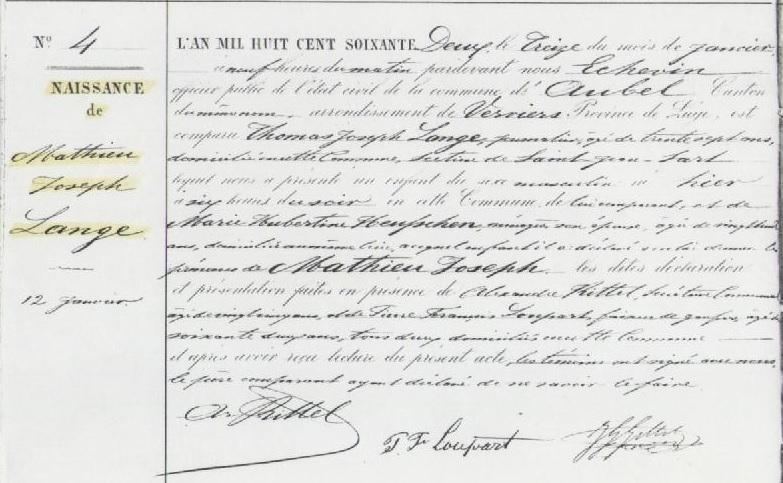 N° 4
NAISSANCE
de
Mathieu
Joseph
Lange
12 janvier
L'AN MIL HUIT CENT SOIXANTE Deux, le Treize du mois de janvier
à neuf heures du matin pardevant nous Echevin
officier public de l'état civil de la commune d' Aubel, Canton
du même nom, arrondissement de Verviers Province de Liège, est
comparu Thomas Joseph Lange, journalier, âgé de trente sept ans,
domicilié en cette Commune, section de Saint-Jean-Sart
lequel nous a présenté un enfant du sexe masculin né hier
à six heures du soir en cette Commune, de lui comparant, et de
Marie Hubertine Heuschen, ménagère, son épouse, âgée de
ans, domiciliée au même lieu, auquel enfant il a déclaré vouloir donner les
prénoms de Mathieu Joseph. les dites déclaration
et présentation faites en présence de Alexandre Kittel, secrétaire Communal
âgé de vingt cinq ans, et de Pierre François Loupart, âgé de
soixante deux ans, tous deux domiciliés en cette Commune
et après avoir reçu lecture du présent acte, les témoins ont signé avec nous,
le père comparant ayant déclaré de ne savoir le faire.
Kittel
P. Fr Loupart